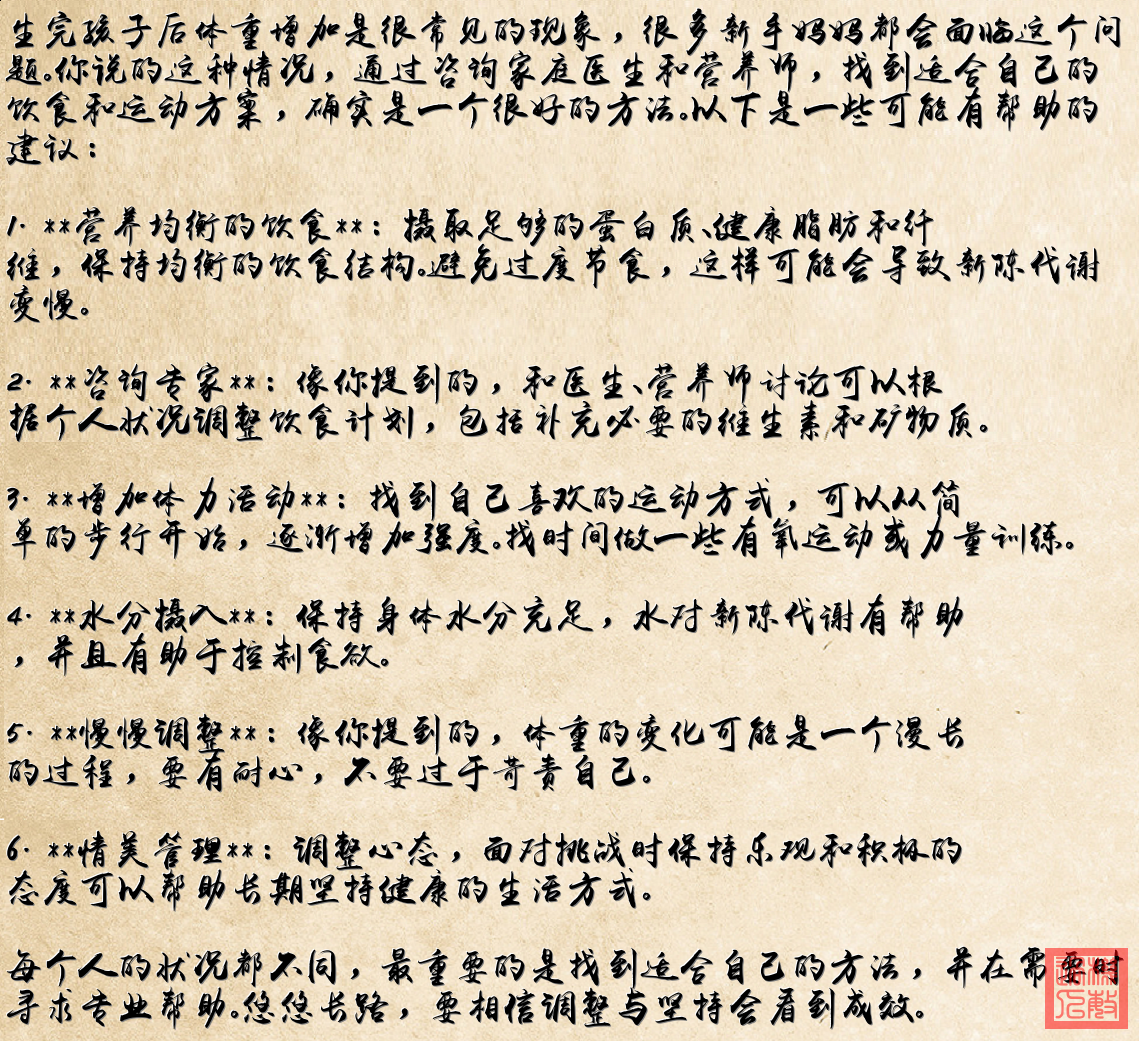 生完孩子后体重增加是很常见的现象，很多新手妈妈都会面临这个问
题。你说的这种情况，通过咨询家庭医生和营养师，找到适合自己的
饮食和运动方案，确实是一个很好的方法。以下是一些可能有帮助的
建议：
1. **营养均衡的饮食**：摄取足够的蛋白质、健康脂肪和纤
维，保持均衡的饮食结构。避免过度节食，这样可能会导致新陈代谢
变慢。
2. **咨询专家**：像你提到的，和医生、营养师讨论可以根
据个人状况调整饮食计划，包括补充必要的维生素和矿物质。
3. **增加体力活动**：找到自己喜欢的运动方式，可以从简
单的步行开始，逐渐增加强度。找时间做一些有氧运动或力量训练。
4. **水分摄入**：保持身体水分充足，水对新陈代谢有帮助
，并且有助于控制食欲。
5. **慢慢调整**：像你提到的，体重的变化可能是一个漫长
的过程，要有耐心，不要过于苛责自己。
6. **情美管理**：调整心态，面对挑战时保持乐观和积极的
态度可以帮助长期坚持健康的生活方式。
每个人的状况都不同，最重要的是找到适合自己的方法，并在需要时
寻求专业帮助。悠悠长路，要相信调整与坚持会看到成效。